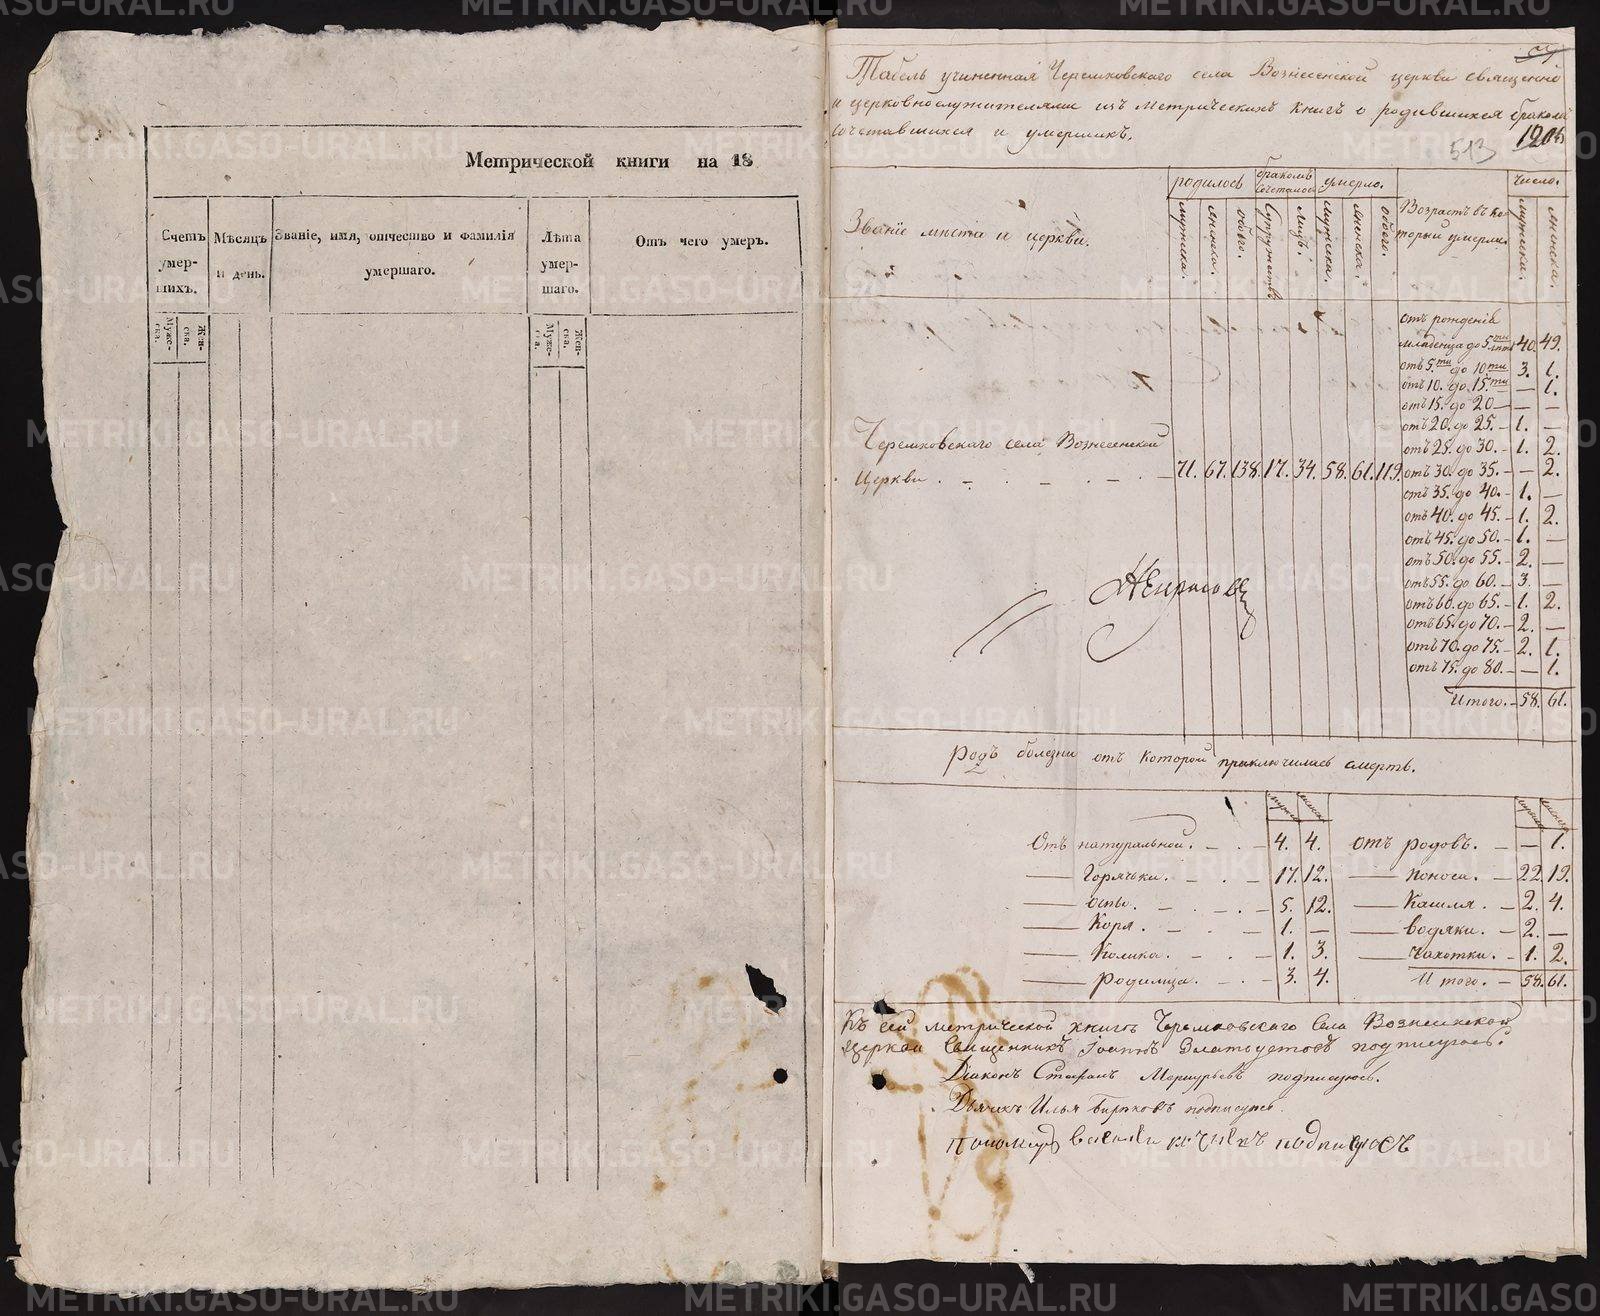 Метрической книги на 18
Счетъ умер-шихъ.
Мѣсяцъ и день.
Званіе, имя, отчество и фамилія умершаго.
Лѣта умер-шаго.
Отъ чего умеръ.
Муже-ска.
Жен-ска.
Муже-с а.
Жен-ска.
Табель учиненная Черемховскаго села Вознесенской церкви священно
и церковнослужителями изъ метрическихъ книгъ о родившихся бракомъ
сочетавшихся и умершихъ.
513
Званіе мѣста и церкви.
родилось
бракомъ сочеталось
умерло.
Возрастъ въ который умерли.
число.
мужеска. женска. обоего. супружествъ лицъ. мужеска. женска. обоего.
мужеска. женска.
отъ рожденія
младенца до 5.ти лѣтъ 40. 49.
отъ 5.ти до 10ти 3. 1.
отъ 10. до 15.ти — 1.
отъ 15. до 20 — — —
отъ 20. до 25. – 1. —
отъ 25. до 30. – 1. 2.
Черемховскаго села Вознесенской
Церкви . – . – . – . – 71. 67. 138. 17. 34. 58. 61. 119.
отъ 30. до 35. – — 2.
отъ 35. до 40. – 1. —
отъ 40. до 45. – 1. 2.
отъ 45. до 50. – 1. —
отъ 50. до 55. – 2. —
отъ 55. до 60. – 3. —
отъ 60. до 65. – 1. 2.
отъ 65. до 70. – 2. —
отъ 70. до 75. – 2. 1.
отъ 75. до 80. – — 1.
Итого. – 58. 61.
Родъ болѣзни отъ которой приключилась смерть.
Отъ натуральной. – . – 4. 4. отъ родовъ. – — 1.
—— Горячки. – . – 17. 12. —— поноса. – 22. 19.
—— оспы. – . – . – 5. 12. —— Кашля. – 2. 4.
—— Коря. – . – 1. — —— водяки. – 2. —
—— Колика. – . – 1. 3. —— Чахотки. – 1. 2.
—— родимца. – . – 3. 4. Итого. – 58. 61.
Къ сей метрической книгѣ Черемховскаго Села Вознесенской
церкви Священникъ Іоаннъ Златоустовъ подписуюсь.
Діаконъ Стефанъ Меркурьевъ подписуюсь.
Дьячекъ Илья Бирюковъ подписуюсь
пономарь василѣи подписуюсь
METRIKI.GASO-URAL.RU